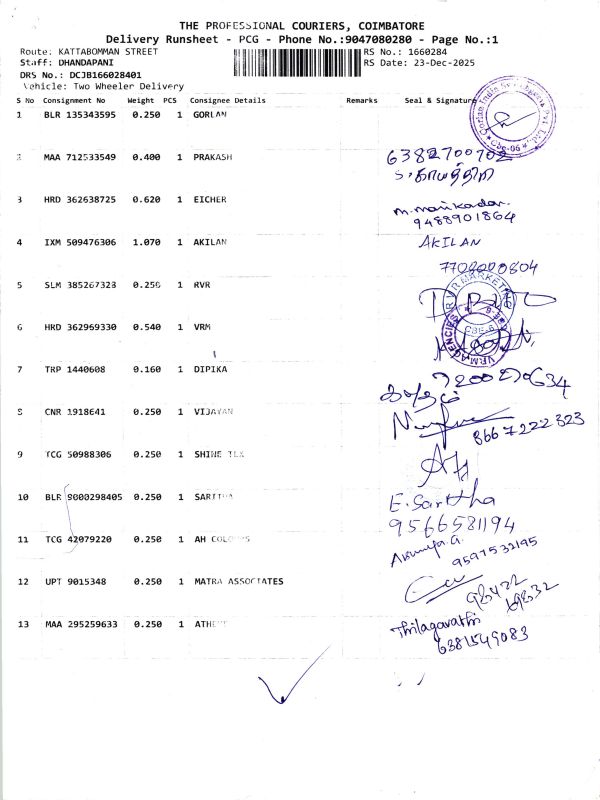 THE PROFESSIONAL COURIERS, COIMBATORE
Delivery Runsheet - PCG - Phone No.:9047080280 - Page No.:1
Route: KATTABOMMAN STREET RS No.: 1660284
Staff: DHANDAPANI RS Date: 23-Dec-2025
DRS No.: DCJB166028401
Vehicle: Two Wheeler Delivery
S No Consignment No Weight PCS Consignee Details Remarks Seal & Signature
1 BLR 135343595 0.250 1 GORLAN
2 MAA 712533549 0.400 1 PRAKASH 6382700702
3 HRD 362638725 0.620 1 EICHER m.manikadan.
9488901864
4 IXM 509476306 1.070 1 AKILAN AKILAN
5 SLM 385267323 0.250 1 RVR RVR MARKETING
6 HRD 362969330 0.540 1 VRM VRM AGENCIES
7 TRP 1440608 0.160 1 DIPIKA 7200270634
8 CNR 1918641 0.250 1 VIJAYAN 8667222323
9 TCG 50988306 0.250 1 SHINE TEX
10 BLR 9000298405 0.250 1 SARITHA E. Saritha
9566581194
11 TCG 42079220 0.250 1 AH COLOURS
9597532195
12 UPT 9015348 0.250 1 MATRA ASSOCIATES
13 MAA 295259633 0.250 1 Thilagavathi
6381549083